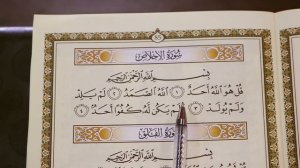 سُورَةُ الإِخْلَاصِ
بِسْمِ اللَّهِ الرَّحْمَٰنِ الرَّحِيمِ
قُلْ هُوَ اللَّهُ أَحَدٌ ١ اللَّهُ الصَّمَدُ ٢ لَمْ يَلِدْ
وَلَمْ يُولَدْ ٣ وَلَمْ يَكُن لَّهُ كُفُوًا أَحَدٌ ٤
سُورَةُ الْفَلَقِ
بِسْمِ اللَّهِ الرَّحْمَٰنِ الرَّحِيمِ